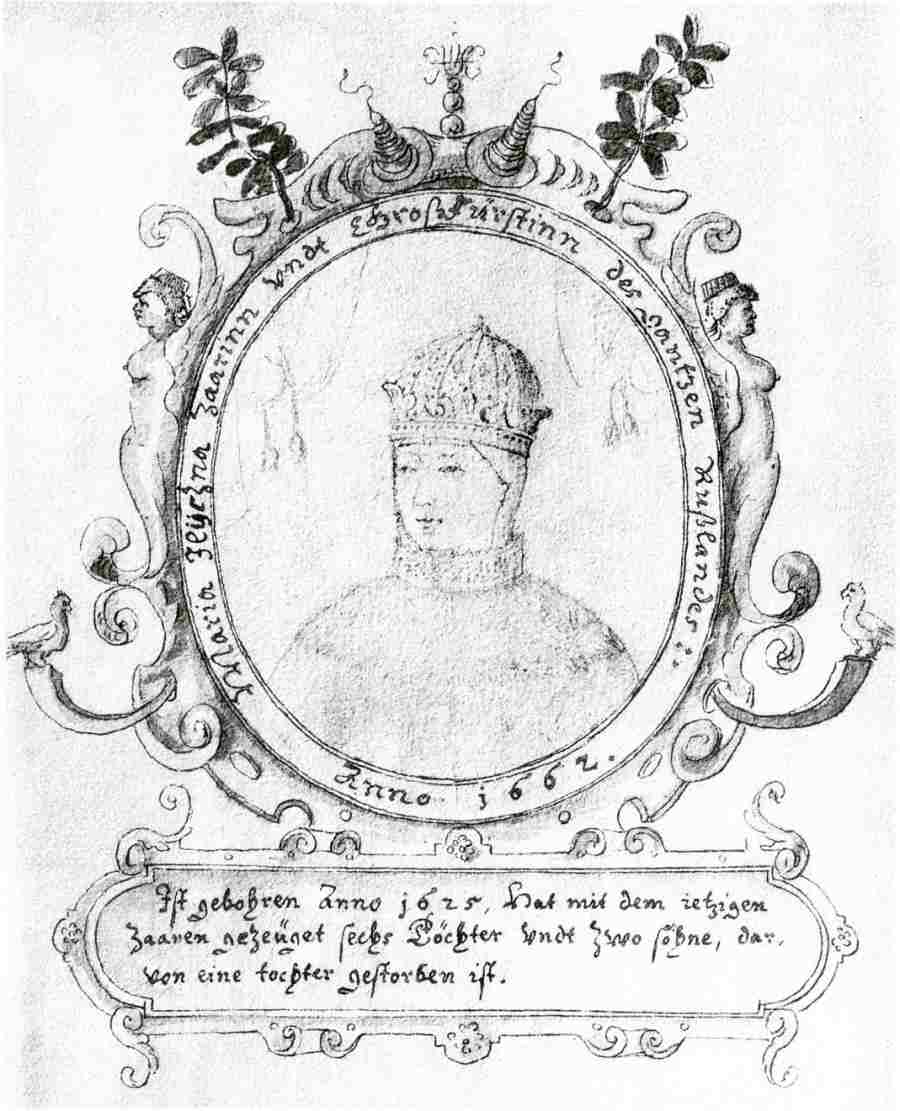 Maria Ilijczna Zaarinn vndt GroßFürstinn des Gantzen Rußlandes
Anno 1662.
Ist gebohren Anno 1625, Hat mit dem ietzigen
Zaaren gezeüget sechs Töchter vndt zwo söhne, dar,
von eine tochter gestorben ist.